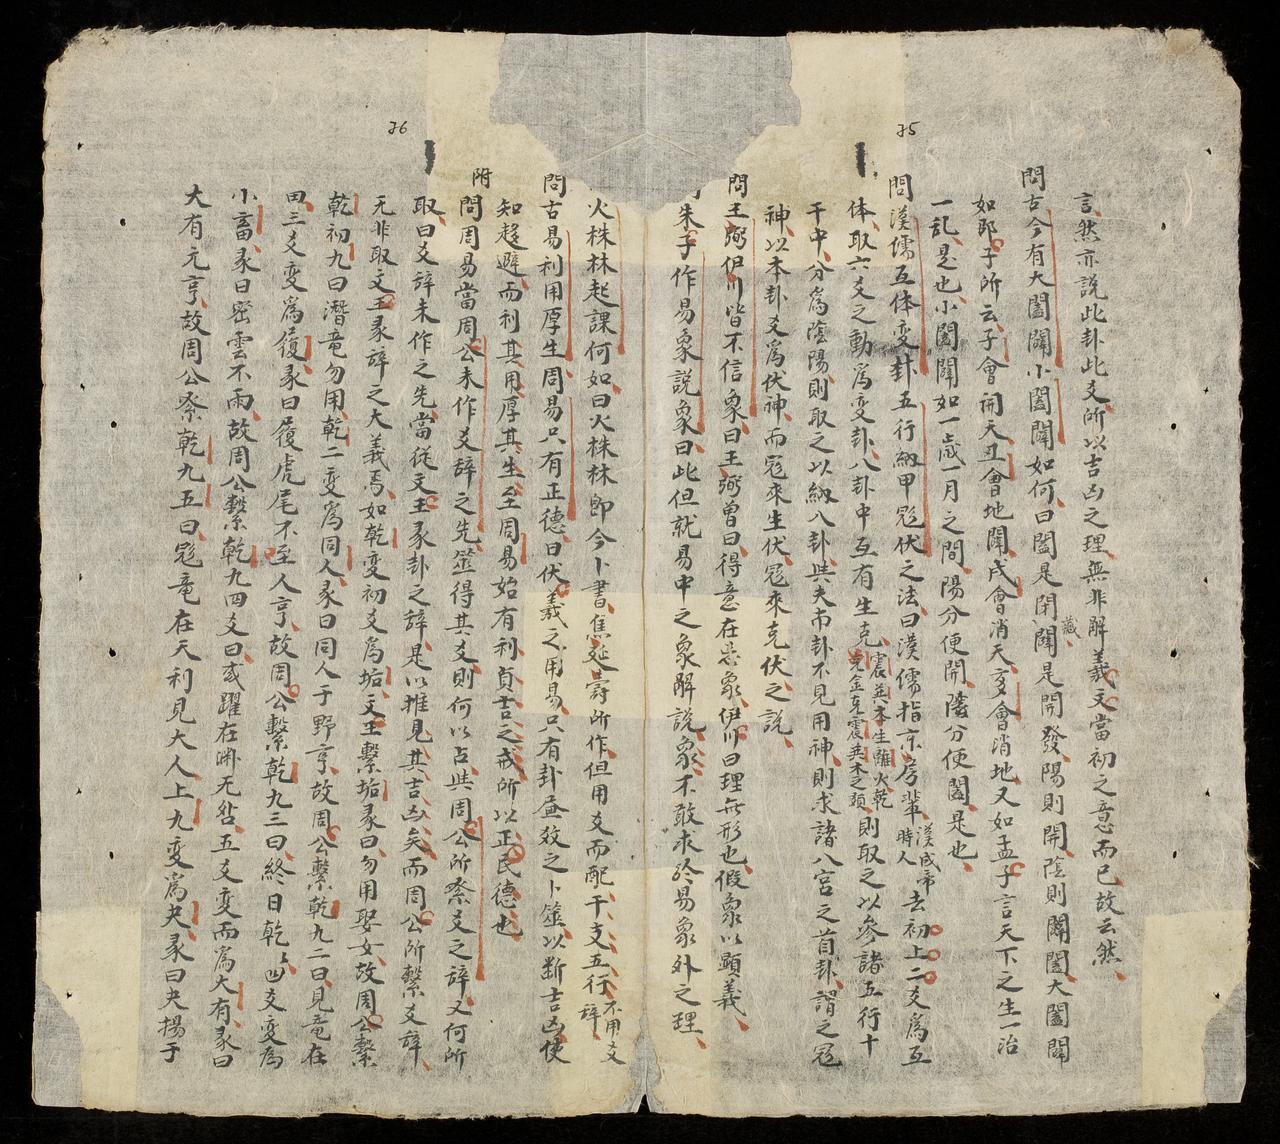 75
言然亦説此卦此爻所以吉凶之理無非解羲文當初之意而已故云然
問古今有大闔闢小闔闢如何曰闔是閉藏闢是開發陽則開陰則闢闔大闔闢
如邵子所云子會開天丑會地闢戌會消天亥會消地又如孟子言天下之生一治
一乱是也小闔闢如一歲一月之間陽分便開陰分便闔是也
問漢儒互体變卦五行納甲冦伏之法曰漢儒指京房輩漢成帝時人去初上二爻爲互
体取六爻之動爲变卦八卦中互有生克震巽木生離火乾兌金克震巽木之類則取之以參諸五行十
干中分爲陰陽則取之以納八卦與夫帀卦不見用神則求諸八宮之首卦謂之冦
神以本卦爻爲伏神而冦來生伏冦來克伏之説
問王弼伊川皆不信象曰王弼曾曰得意在忘象伊川曰理無形也假象以顕義
朱子作易象説象曰此但就易中之象解説象不敢求於易象外之理
76
火株林起課何如曰火株林即今卜書焦延壽所作但用爻而配干支五行不用爻辞
問古易利用厚生周易只有正德曰伏羲之用易只有卦画效之卜筮以断吉凶使
知趍避而利其用厚其生至周易始有利貞吉之戒所以正民德也
附問周易當周公未作爻辞之先筮得其爻則何以占與周公所系爻之辞又何所
取曰爻辞未作之先當從文王彖卦之辞是以推見其吉凶矣而周公所繫爻辞
无非取文王彖辞之大義焉如乾变初爻爲垢文王繫垢彖曰勿用娶女故周公繫
乾初九曰潛竜勿用乾二变爲同人彖曰同人于野亨故周公繫乾九二曰見竜在
田三爻变爲履彖曰履虎尾不咥人亨故周公繫乾九三曰終日乾〻四爻变爲
小畜彖曰密雲不雨故周公繫乾九四爻曰或躍在渊无咎五爻变而爲大有彖曰
大有元亨故周公系乾九五曰飛竜在天利見大人上九变爲夬彖曰夬揚于